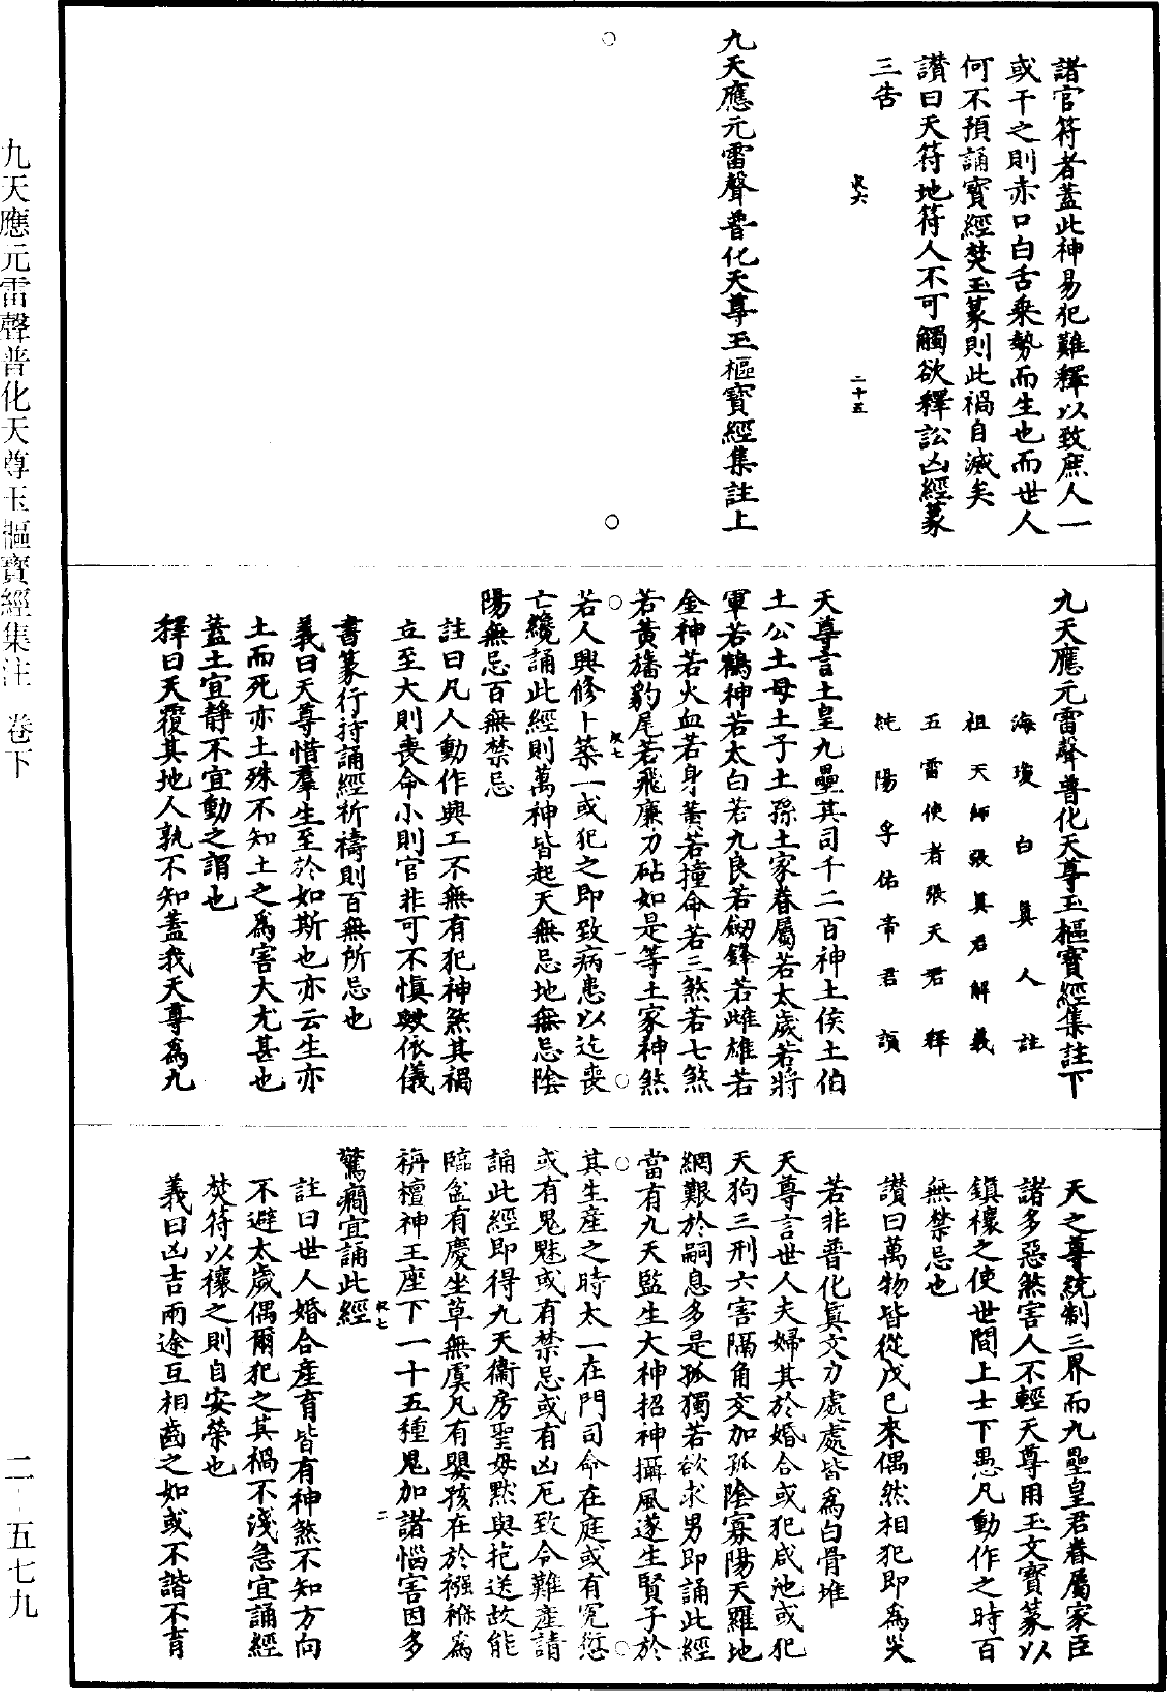 諸官符者蓋此神易犯難釋以致庶人一
或干之則赤口白舌乗勢而生也而世人
何不預誦寳經焚玉篆則此禍自滅矣
讃曰天符地符人不可觸欲釋訟凶經篆
三告
二十五
九天應元雷聲普化天尊玉樞寳經集註上
九天應元雷聲普化天尊玉樞寳經集註下
海瓊白眞人註
祖天師張眞君解義
五雷使者張天君釋
純陽孚佑帝君讃
天尊言土皇九壘其司千二百神土侯土伯
土公土母土子土孫土家眷屬若太歲若將
軍若鶴神若太白若九良若劒鋒若雌雄若
金神若火血若身黃若撞命若三煞若七煞
若黃旛豹尾若飛廉刀砧如是等土家神煞
若人興修卜築一或犯之即致病患以迄喪
亡纔誦此經則萬神皆起天無忌地無忌陰
陽無忌百無禁忌
註曰凡人動作興工不無有犯神煞其禍
立至大則喪命小則官非可不愼歟依儀
書篆行持誦經祈禱則百無所忌也
義曰天尊惜羣生至於如斯也亦云生亦
土而死亦土殊不知土之爲害大尤甚也
蓋土宜静不宜動之謂也
釋曰天覆其地人孰不知蓋我天尊爲九
一
天之尊統制三界而九壘皇君眷屬家臣
諸多惡煞害人不輕天尊用玉文寳篆以
鎭禳之使世間上士下愚凡動作之時百
無禁忌也
讃曰萬物皆從戊巳來偶然相犯即爲災
若非普化眞文力處處皆爲白骨堆
天尊言世人夫婦其於婚合或犯咸池或犯
天狗三刑六害隔角交加孤陰寡陽天羅地
網艱於嗣息多是孤獨若欲求男即誦此經
當有九天監生大神招神攝風遂生賢子於
其生産之時太一在門司命在庭或有寃愆
或有鬼魅或有禁忌或有凶厄致令難產請
誦此經即得九天衞房聖母默與抱送故能
臨盆有慶坐草無虞凡有嬰孩在於襁褓爲
梅檀神王座下一十五種鬼加諸惱害因多
驚癇宜誦此經
二
註曰世人婚合産育皆有神煞不知方向
不避太歲偶爾犯之其禍不淺急宜誦經
焚符以禳之則自安榮也
義曰凶吉兩途互相齒之如或不諧不育
九天應元雷聲普化天尊玉樞寶經集注　卷下
二－五七九